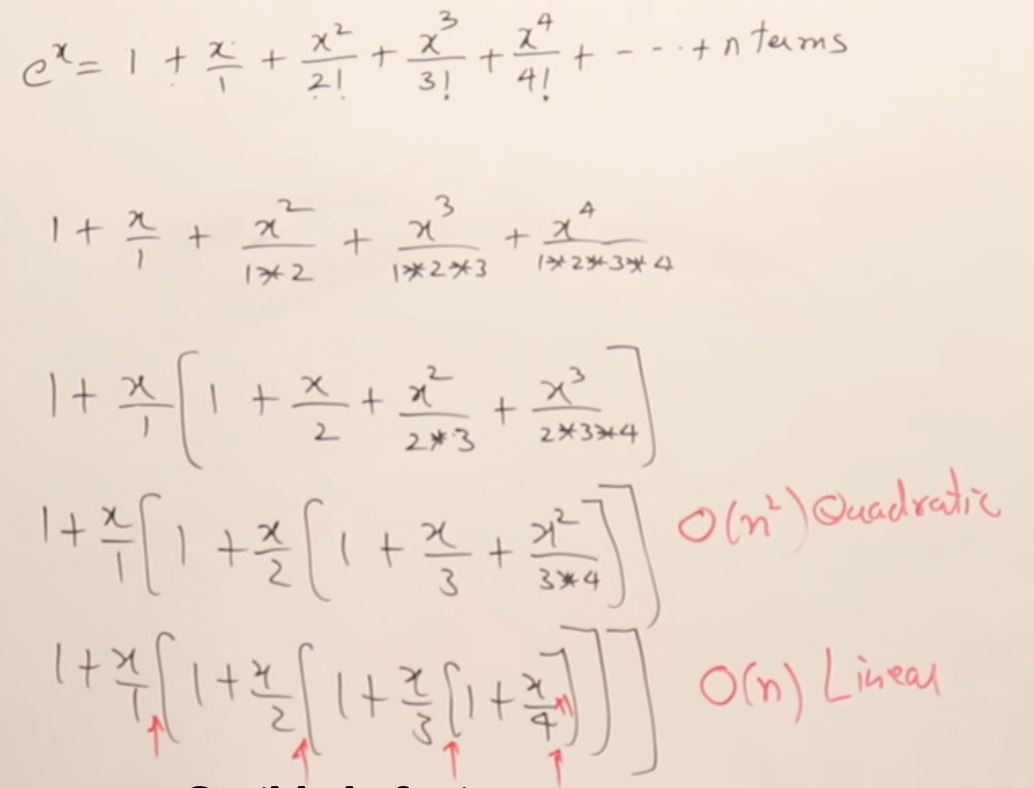 e^x = 1 + x/1 + x²/2! + x³/3! + x⁴/4! + - - - · + n terms
1 + x/1 + x²/1*2 + x³/1*2*3 + x⁴/1*2*3*4
1 + x/1 [ 1 + x/2 + x²/2*3 + x³/2*3*4 ]
1 + x/1 [ 1 + x/2 [ 1 + x/3 + x²/3*4 ] ] O(n²) Quadratic
1 + x/1 [ 1 + x/2 [ 1 + x/3 [ 1 + x/4 n ] ] ] O(n) Linear